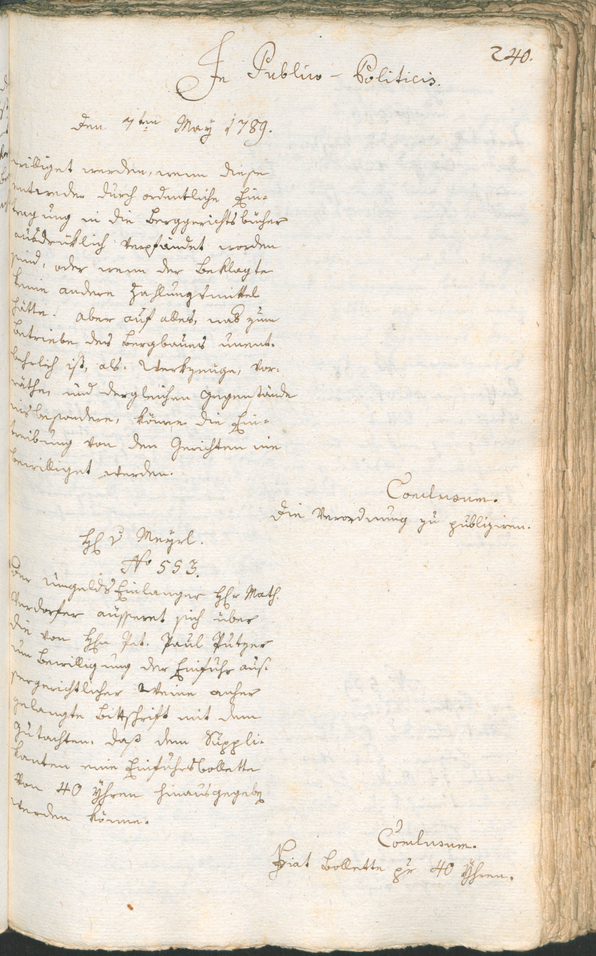 240.
In Publico-Politicis.
den 7ten May 1789.
williget werden, wenn diese
entweder durch ordentliche Ein-
tragung in die Berggerichtsbücher
ausdrücklich verpfändet worden
sind, oder wenn der Beklagte
keine andere Zahlungsmittel
hätte. Aber auf alles, was zum
Betriebe des Bergbaues unent-
behrlich ist, als Werkzeuge, Vor-
räthe, und dergleichen Gegenstände
insbesondere, könne die Ein-
treibung von den Gerichten nie
bewilliget werden.
Conclusum.
Die Verordnung zu publiziren.
H. v Meyrl.
No 553.
Der Umgelds Einlanger Hr. Math.
Verdorfer äussert sich über
die von Hrn Jos. Paul Putzer
um Bewilligung der Einfuhr aus-
sergerichtlicher Weine anher
gelangte Bittschrift mit dem
Gutachten, daß dem Suppli-
kanten eine Einfuhrsbollette
von 40 Yhren hinausgegeben
werden könne.
Conclusum.
Fiat Bollette pr 40 Yhren.